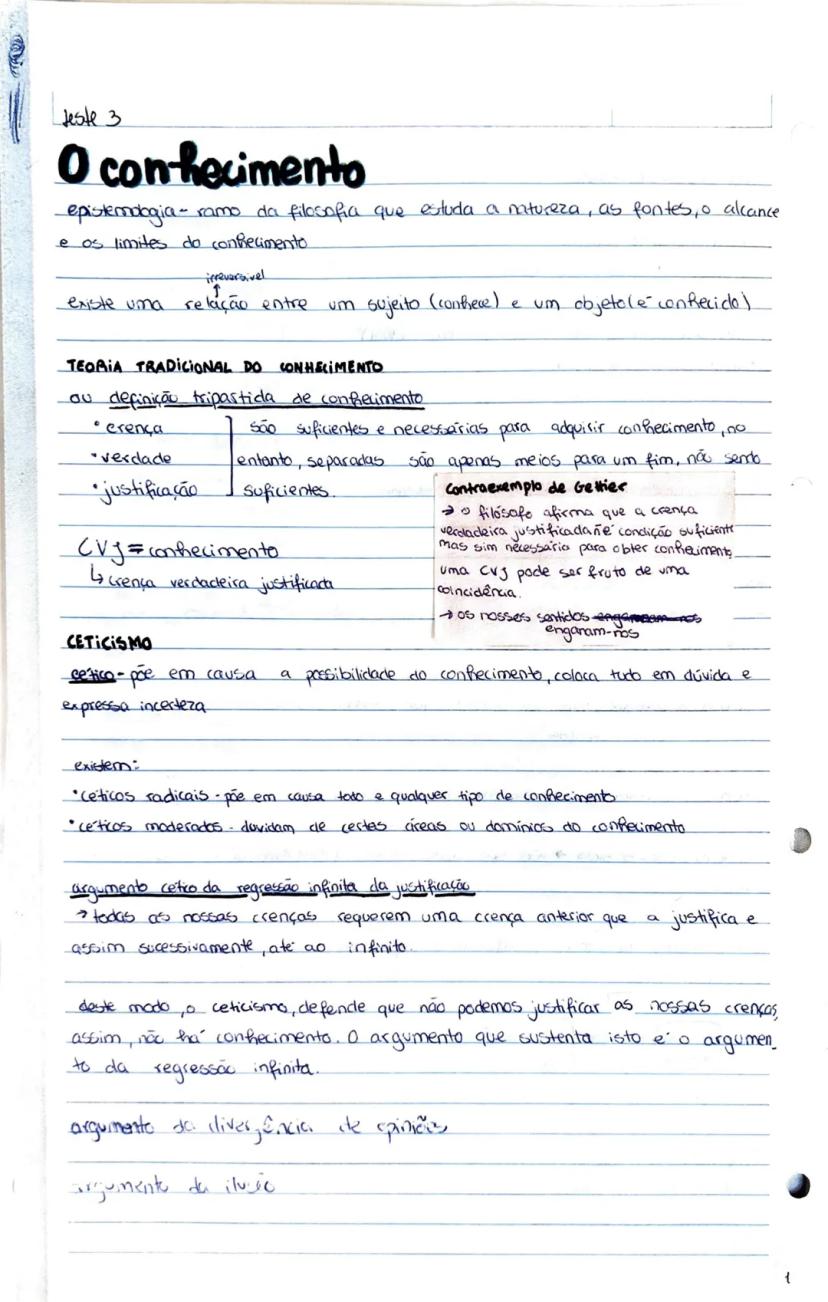 teste 3
O conhecimento
epistemologia - ramo da filosofia que estuda a natureza, as fontes, o alcance
e os limites do conhecimento
irreversivel
existe uma relação entre um sujeito (conhece) e um objeto (é conhecido)
TEORIA TRADICIONAL DO CONHECIMENTO
ou definição tripartida de conhecimento
• crença
• verdade
• justificação
são suficientes e necessárias para adquirir conhecimento, no
entanto, separadas são apenas meios para um fim, não sendo
suficientes.
CVJ = conhecimento
↳ crença verdadeira justificada
Contraexemplo de Gettier
→ o filósofo afirma que a crença
verdadeira justificada ñ é condição suficiente
mas sim necessária para obter conhecimento,
uma CVJ pode ser fruto de uma
coincidência.
→ os nossos sentidos
engaram-nos
CETICISMO
cético - põe em causa a possibilidade do conhecimento, coloca tudo em dúvida e
expressa incerteza
existem:
• céticos radicais - põe em causa todo e qualquer tipo de conhecimento
• céticos moderados - duvidam de certas áreas ou domínios do conhecimento
argumento cético da regressão infinita da justificação
→ todas as nossas crenças requerem uma crença anterior que a justifica e
assim sucessivamente, até ao infinito.
deste modo, o ceticismo, defende que não podemos justificar as nossas crenças,
assim, não há conhecimento. O argumento que sustenta isto é o argumen_
to da regressão infinita.
argumento da divergência de opiniões
argumento da ilusão
1